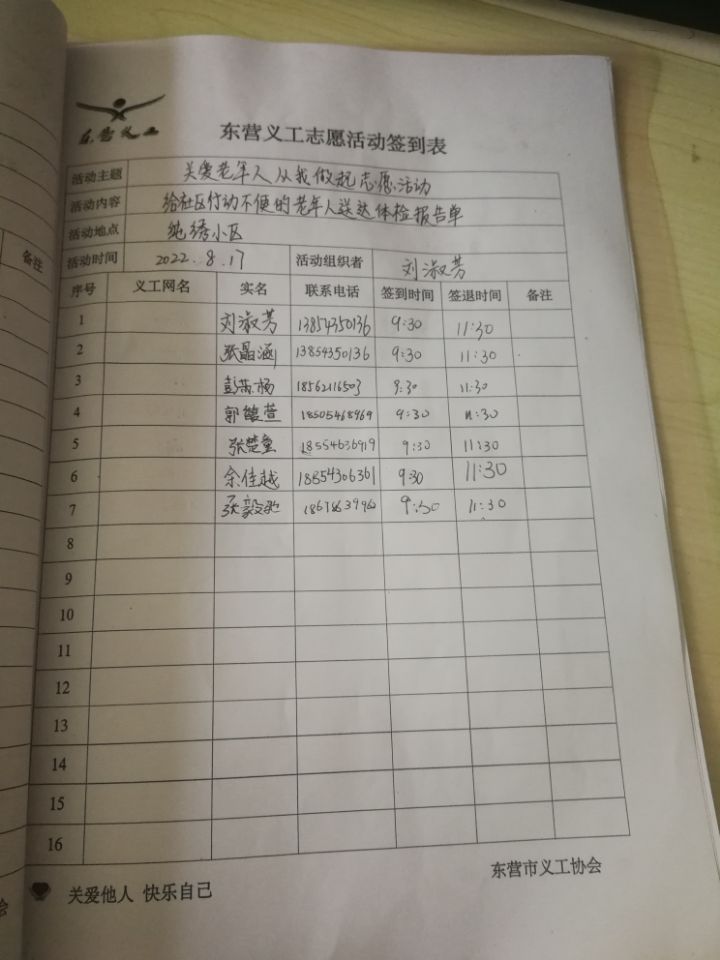 东营义工
东营义工志愿活动签到表
活动主题 关爱老年人从我做起志愿活动
活动内容 给社区行动不便的老年人送达体检报告单
活动地点 纯绣小区
活动时间 2022.8.17 活动组织者 刘淑芳
备注
序号 义工网名 实名 联系电话 签到时间 签退时间 备注
1 刘淑芳 13854350136 9:30 11:30
2 张晶涵 13854350136 9:30 11:30
3 18562116503 9:30 11:30
4 18505468969 9:30 11:30
5 张楚童 18554636919 9:30 11:30
6 余佳越 18854306361 9:30 11:30
7 张毅驰 9:30 11:30
8
9
10
11
12
13
14
15
16
东营市义工协会
关爱他人 快乐自己